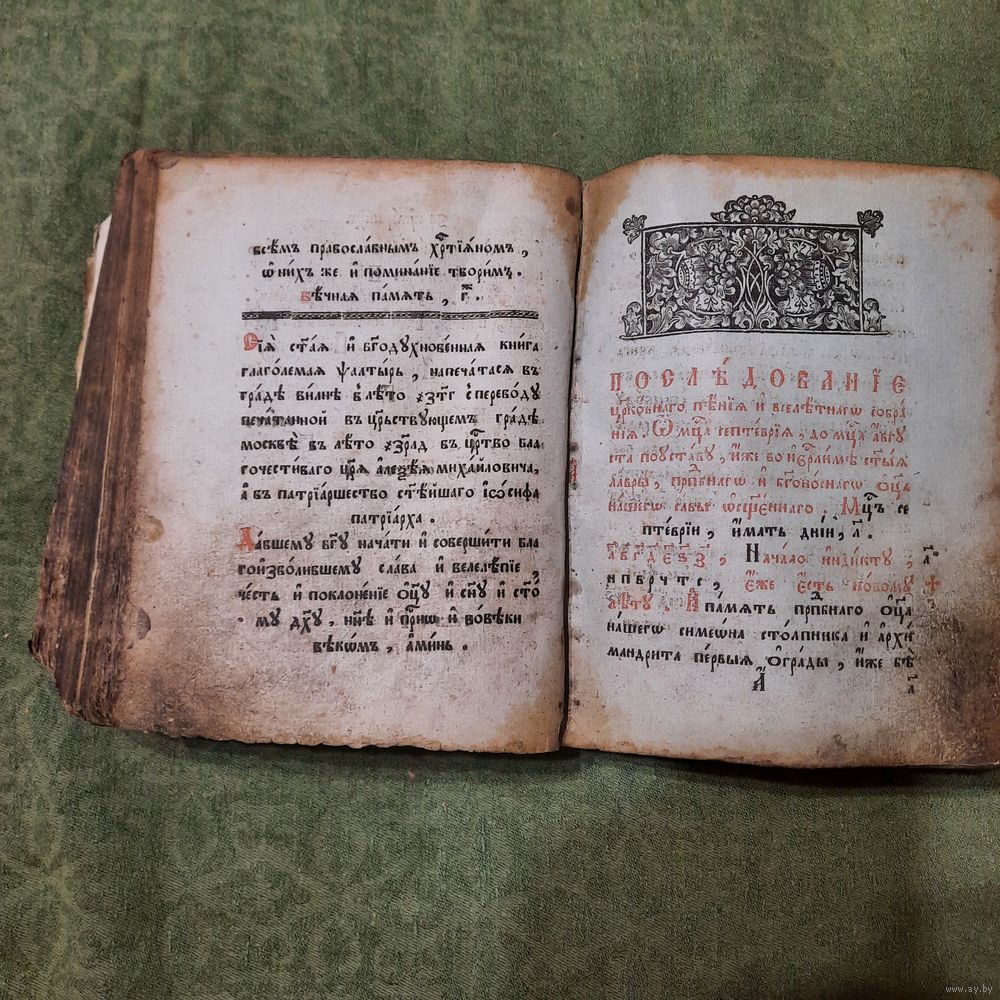 всѣ́мъ правосла́внымъ хр҇тїѧ́номъ,
ѡ҆ ни́хъ же и҆ помина́нїе твори́мъ.
вѣ́чная па́мѧть, г҃.
Сїѧ̀ ст҃а́ѧ и҆ бг҃одухнове́нная кни́га
глаго́лемаѧ ѱалты́рь, напеча́тасѧ въ
гра́дѣ ви́лнѣ в лѣ́то ҂зт҃г с перево́ду
печа́танной въ ца҇рствующемъ гра́дѣ
москвѣ̀ въ лѣ́то ҂зрѯ҃д въ ца҇рство бла
гочести́ваго цр҃ѧ̀ алеѯѣ́ѧ миха́йловича,
а҆ въ патрїа́ршество ст҃ѣ́йшаго і҆ѡ́сифа
патрїа́рха.
Да́вшему бг҃у нача́ти и҆ соверши́ти бла
гоизво́лившему сла́ва и҆ велелѣ́пїе,
че́сть и҆ поклоне́нїе ѻ҆ц҃у̀ и҆ сн҃у и҆ ст҃о́
му дх҃у, нн҃ѣ и҆ при҇нѡ и҆ во́вѣки
вѣкѡ́мъ, а҆ми́нь.
ПОСЛѢ́ДОВАНЇЕ
цр҃ко́внаго пѣ́нїѧ и҆ вселѣ́тнагѡ собра́
нїѧ. Ѿ мц҇а септе́врїѧ, до мц҇а а҆́вгу
ста по уста́ву, и҆́же во і҆ер҇ли́мѣ ст҃ы́ѧ
ла́вры, прпⷣбнагѡ и҆ бг҃оно́снагѡ ѻ҆ц҃а̀
на́шегѡ са́вы ѡ҆сщ҃е́ннаго. Мц҇ъ се
пте́врїй, и҆́мать дні́й, л҃.
а҃в҃г҃д҃є҃ѕ҃з҃, Нача́ло и҆нди́кту,
и҆̀ п в р ч т с, є҆́же є҆́сть но́вому
лѣ́ту. И҆ па́мѧть прпⷣбнаго ѻ҆ц҃а̀
на́шегѡ симеѡ́на сто́лпника и҆ а҆рхи
мандри́та пе́рвыѧ ѻ҆гра́ды, и҆́же бѣ̀
а҃
www.ay.by